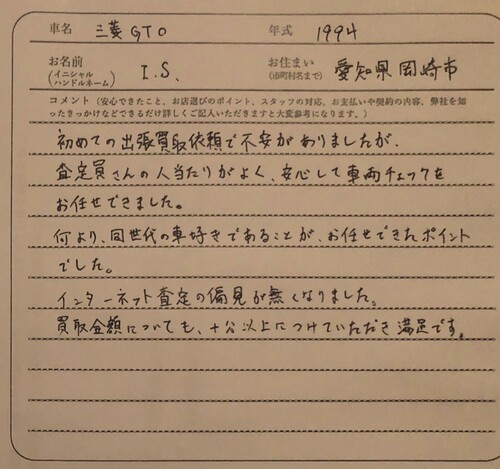 車名 三菱GTO 年式 1994
お名前 (イニシャル ハンドルネーム) I.S. お住まい (市町村名まで) 愛知県岡崎市
コメント (安心できたこと、お店選びのポイント、スタッフの対応、お支払いや契約の内容、弊社を知
ったきっかけなどできるだけ詳しくご記入いただきますと大変参考になります。)
初めての出張買取依頼で不安がありましたが、
査定員さんの人当たりがよく、安心して車両チェックを
お任せできました。
何より、同世代の車好きであることが、お任せできたポイント
でした。
インターネット査定の偏見が無くなりました。
買取金額についても、十分以上につけていただき満足です。